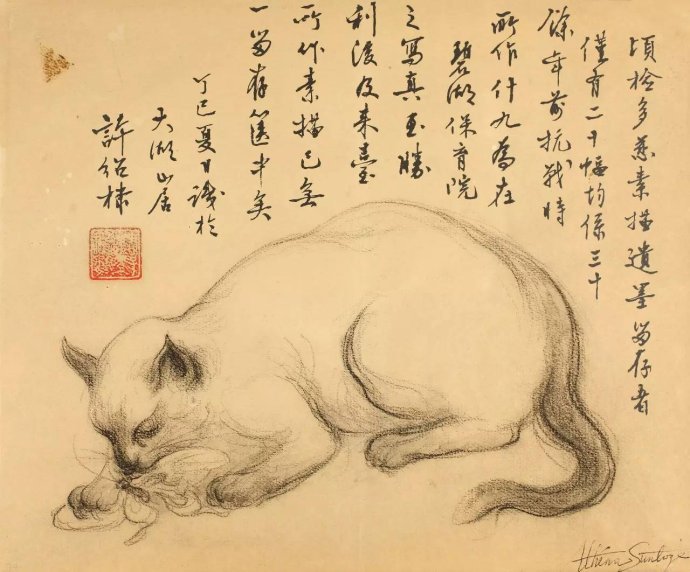 頃檢多慈素描遺墨留存者
僅有二十幅均係三十
餘年前抗戰時
所作什九為在
碧湖保育院
之寫真至勝
利後及來臺
所作素描已無
一留存篋中矣
丁巳夏日識於
大湖山居
許紹棣